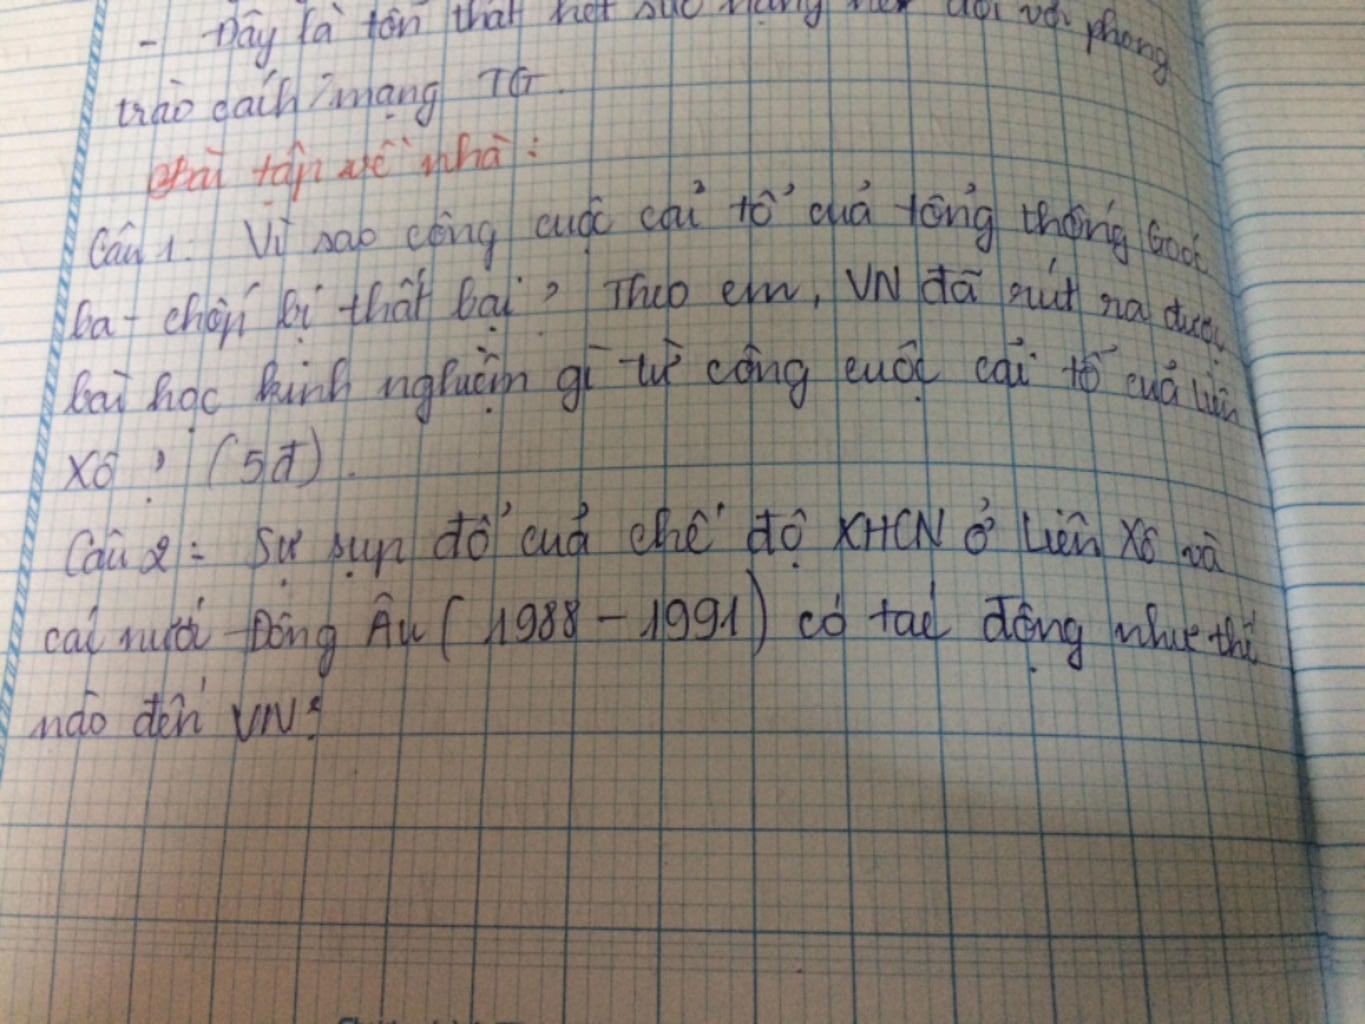 - Đây là tổn thất hết sức nặng nề đối với phong
trào cách mạng TG.
Bài tập về nhà:
Câu 1: Vì sao công cuộc cải tổ của tổng thống Gooc
ba-chốp bị thất bại? Theo em, VN đã rút ra được
bài học kinh nghiệm gì từ công cuộc cải tổ của Liên
Xô? (5đ).
Câu 2: Sự sụp đổ của chế độ XHCN ở Liên Xô và
các nước Đông Âu (1988-1991) có tác động như thế
nào đến VN?